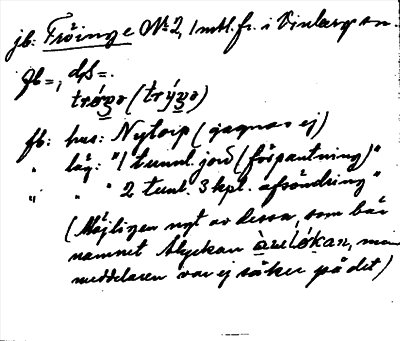 jb: Fröinge No 2, 1 mtl. fr. i Vinberg sn.
Gb =, ds =.
trǿʒə (trýʒə)
fb: hus: Nytorp (gagnas ej)
" läg: "1 tunnl. jord (förpantning)"
" " " 2 tunl. 3 kpl. afsöndring"
(Möjligen ngt av dessa, som bär
namnet Alyckan àːelókan, men
meddelaren var ej säker på det)